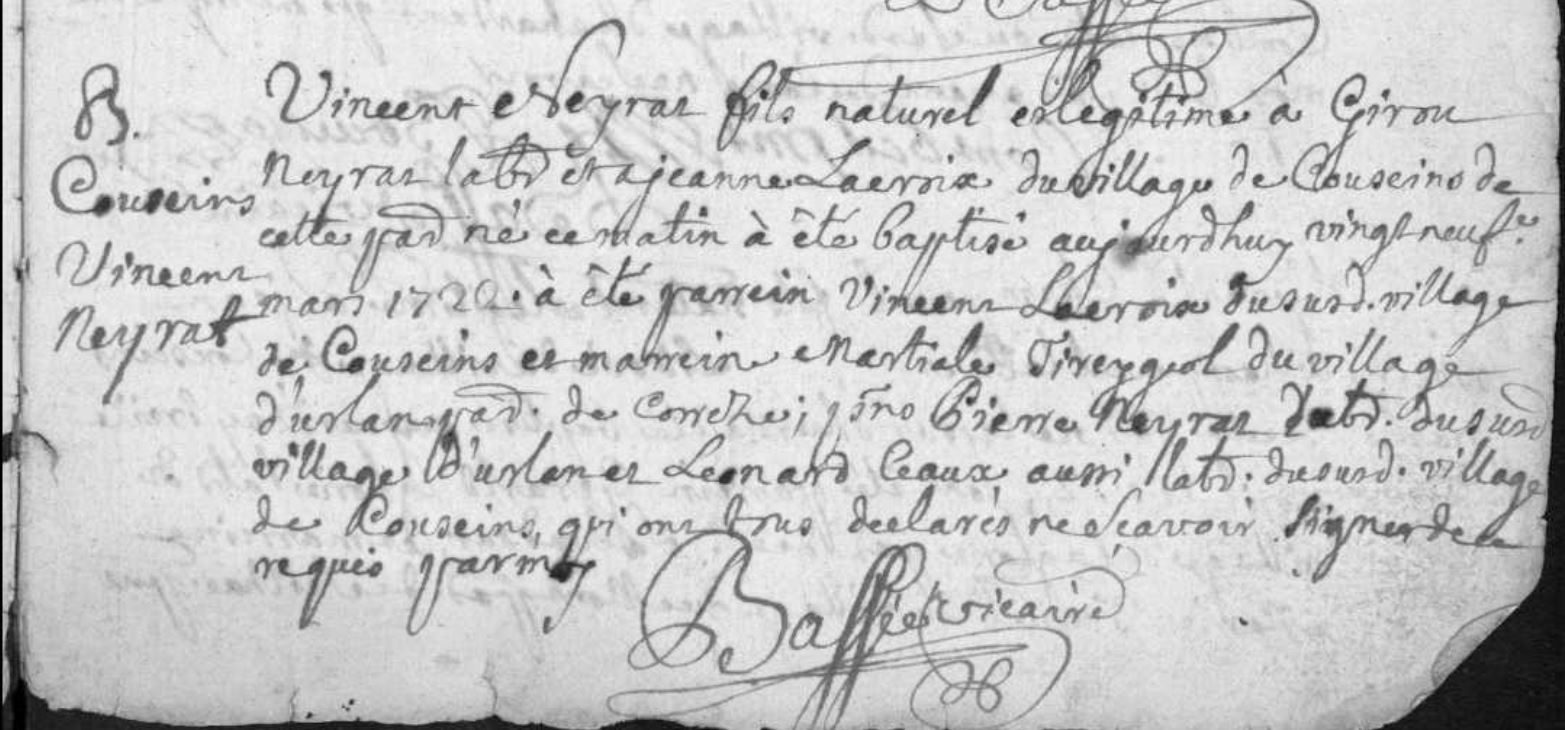 B.
Couseins
Vincent
Neyrat
Vincent Neyrat fils naturel et legitime a Girou
Neyrat labr et a jeanne Lacroix du village de Couseins de
cette par né ce matin à êté baptisé aujourdhuy vingt neufe
mars 1722. à êté parrein Vincent Lacroix du susd. village
de Couseins et marreine Martiale Tireygeol du village
d'urlan par. de Correze; psno Pierre Neyrat labr. du susd
village d'urlan et Leonard Ceaux aussi labr. du susd. village
de Couseins, qui ont tous declarés ne scavoir signer de ce
requis par moy
Baffée vicaire